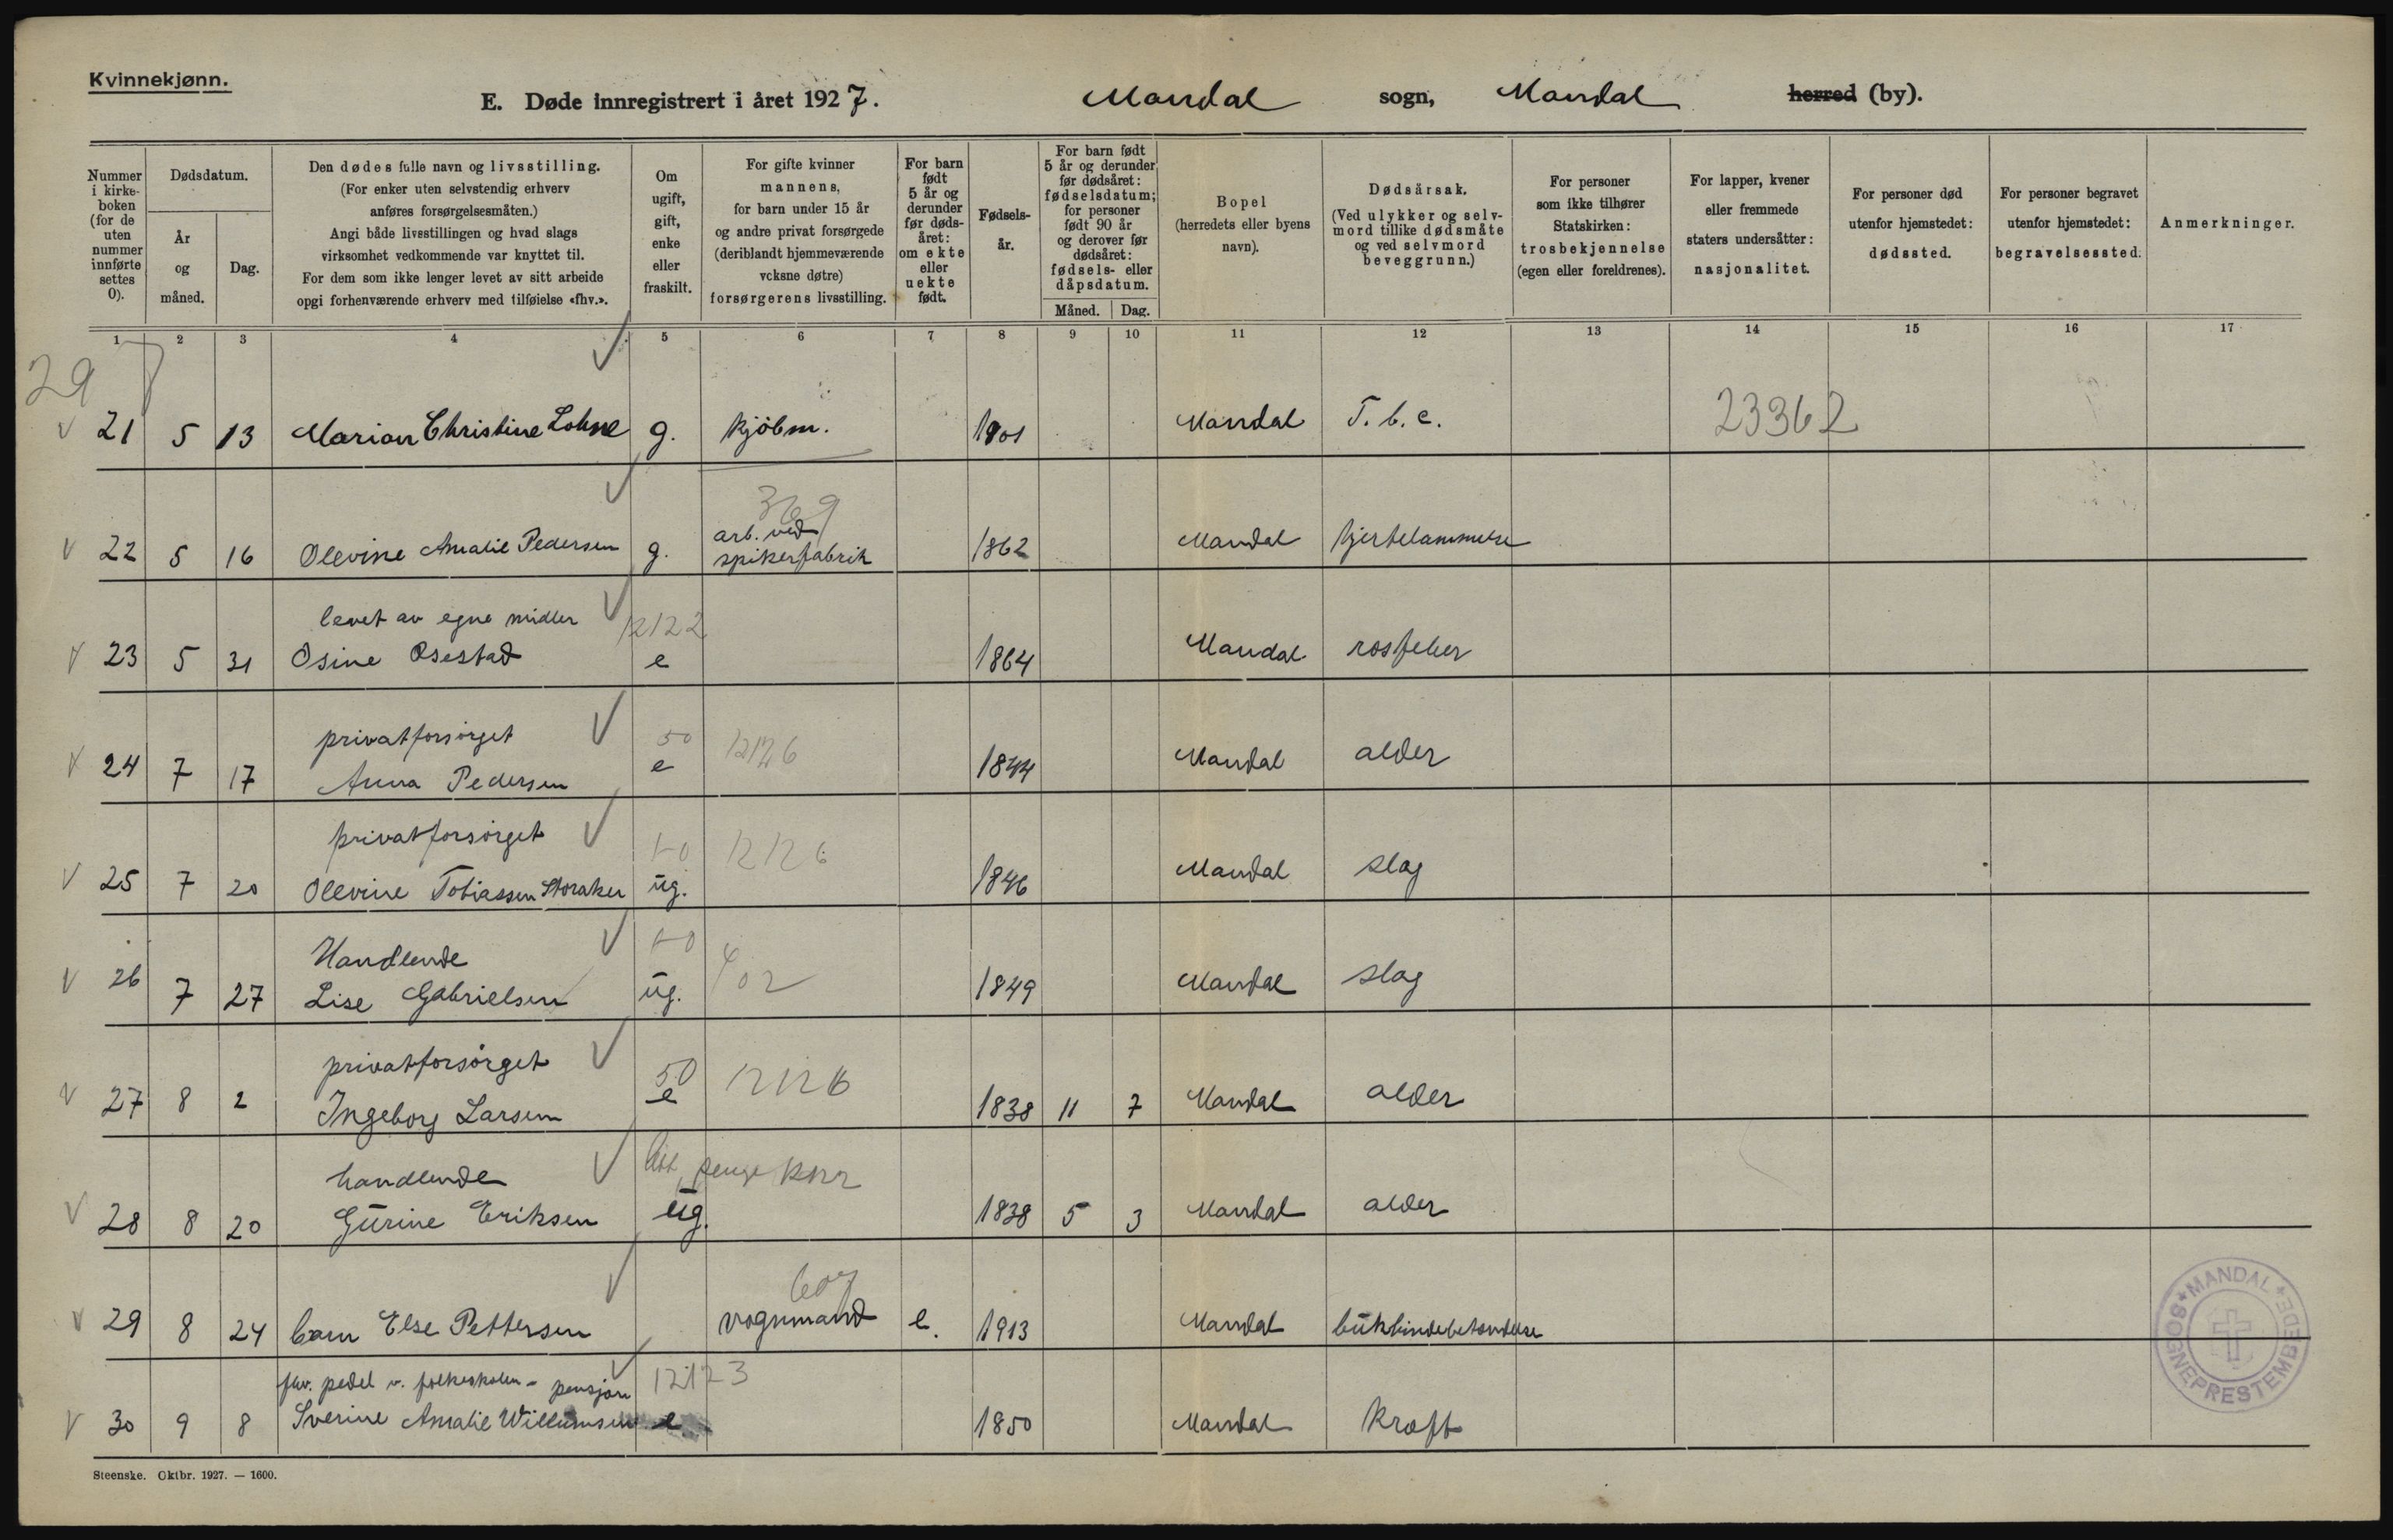 Kvinnekjønn.
E. Døde innregistrert i året 1927. Mandal sogn, Mandal herred (by).
Nummer i kirkeboken (for de uten nummer innførte settes 0).
Dødsdatum.
År og måned.
Dag.
Den dødes fulle navn og livsstilling.
(For enker uten selvstendig erhverv
anføres forsørgelsesmåten.)
Angi både livsstillingen og hvad slags
virksomhet vedkommende var knyttet til.
For dem som ikke lenger levet av sitt arbeide
opgi forhenværende erhverv med tilføielse «fhv.».
Om ugift, gift, enke eller fraskilt.
For gifte kvinner
mannens,
for barn under 15 år
og andre privat forsørgede
(deriblandt hjemmeværende
voksne døtre)
forsørgerens livsstilling.
For barn født 5 år og derunder før dødsåret: om ekte eller uekte født.
Fødselsår.
For barn født 5 år og derunder før dødsåret: fødselsdatum; for personer født 90 år og derover før dødsåret: fødsels- eller dåpsdatum.
Måned. Dag.
Bopel
(herredets eller byens
navn).
Dødsårsak.
(Ved ulykker og selvmord tillike dødsmåte og ved selvmord beveggrunn.)
For personer
som ikke tilhører
Statskirken:
trosbekjennelse
(egen eller foreldrenes).
For lapper, kvener
eller fremmede
staters undersåtter:
nasjonalitet.
For personer død
utenfor hjemstedet:
dødssted.
For personer begravet
utenfor hjemstedet:
begravelsessted.
Anmerkninger.
1 2 3 4 5 6 7 8 9 10 11 12 13 14 15 16 17
29
21 5 13 Marian Christine Lohne g. kjöbm. 1901 Mandal T.b.c. 23362
369
arb. ved
22 5 16 Olevine Amalie Pedersen g. spikerfabrik 1862 Mandal hjertelammelse
levet av egne midler 12122
23 5 31 Osine Osestad e 1864 Mandal rosfeber
privatforsörget 50 12126
24 7 17 Anna Pedersen e 1844 Mandal alder
privatforsörget 50 12126
25 7 20 Olevine Tobiassen Storaker ug. 1846 Mandal slag
Handlende 50 402
26 7 27 Lise Gabrielsen ug. 1849 Mandal slag
privatforsörget 50 12126
27 8 2 Ingeborg Larsen e 1838 11 7 Mandal alder
handlende
28 8 20 Gurine Eriksen ug. 1838 5 3 Mandal alder
607
29 8 24 barn Else Pettersen vognmand e. 1913 Mandal bukhindebetendelse
fhv. pedel v. folkeskolen - pensjon 12123
30 9 8 Sverine Amalie Willumsen e 1850 Mandal Kræft
MANDAL SOGNEPRESTEMBEDE
Steenske. Oktbr. 1927. — 1600.